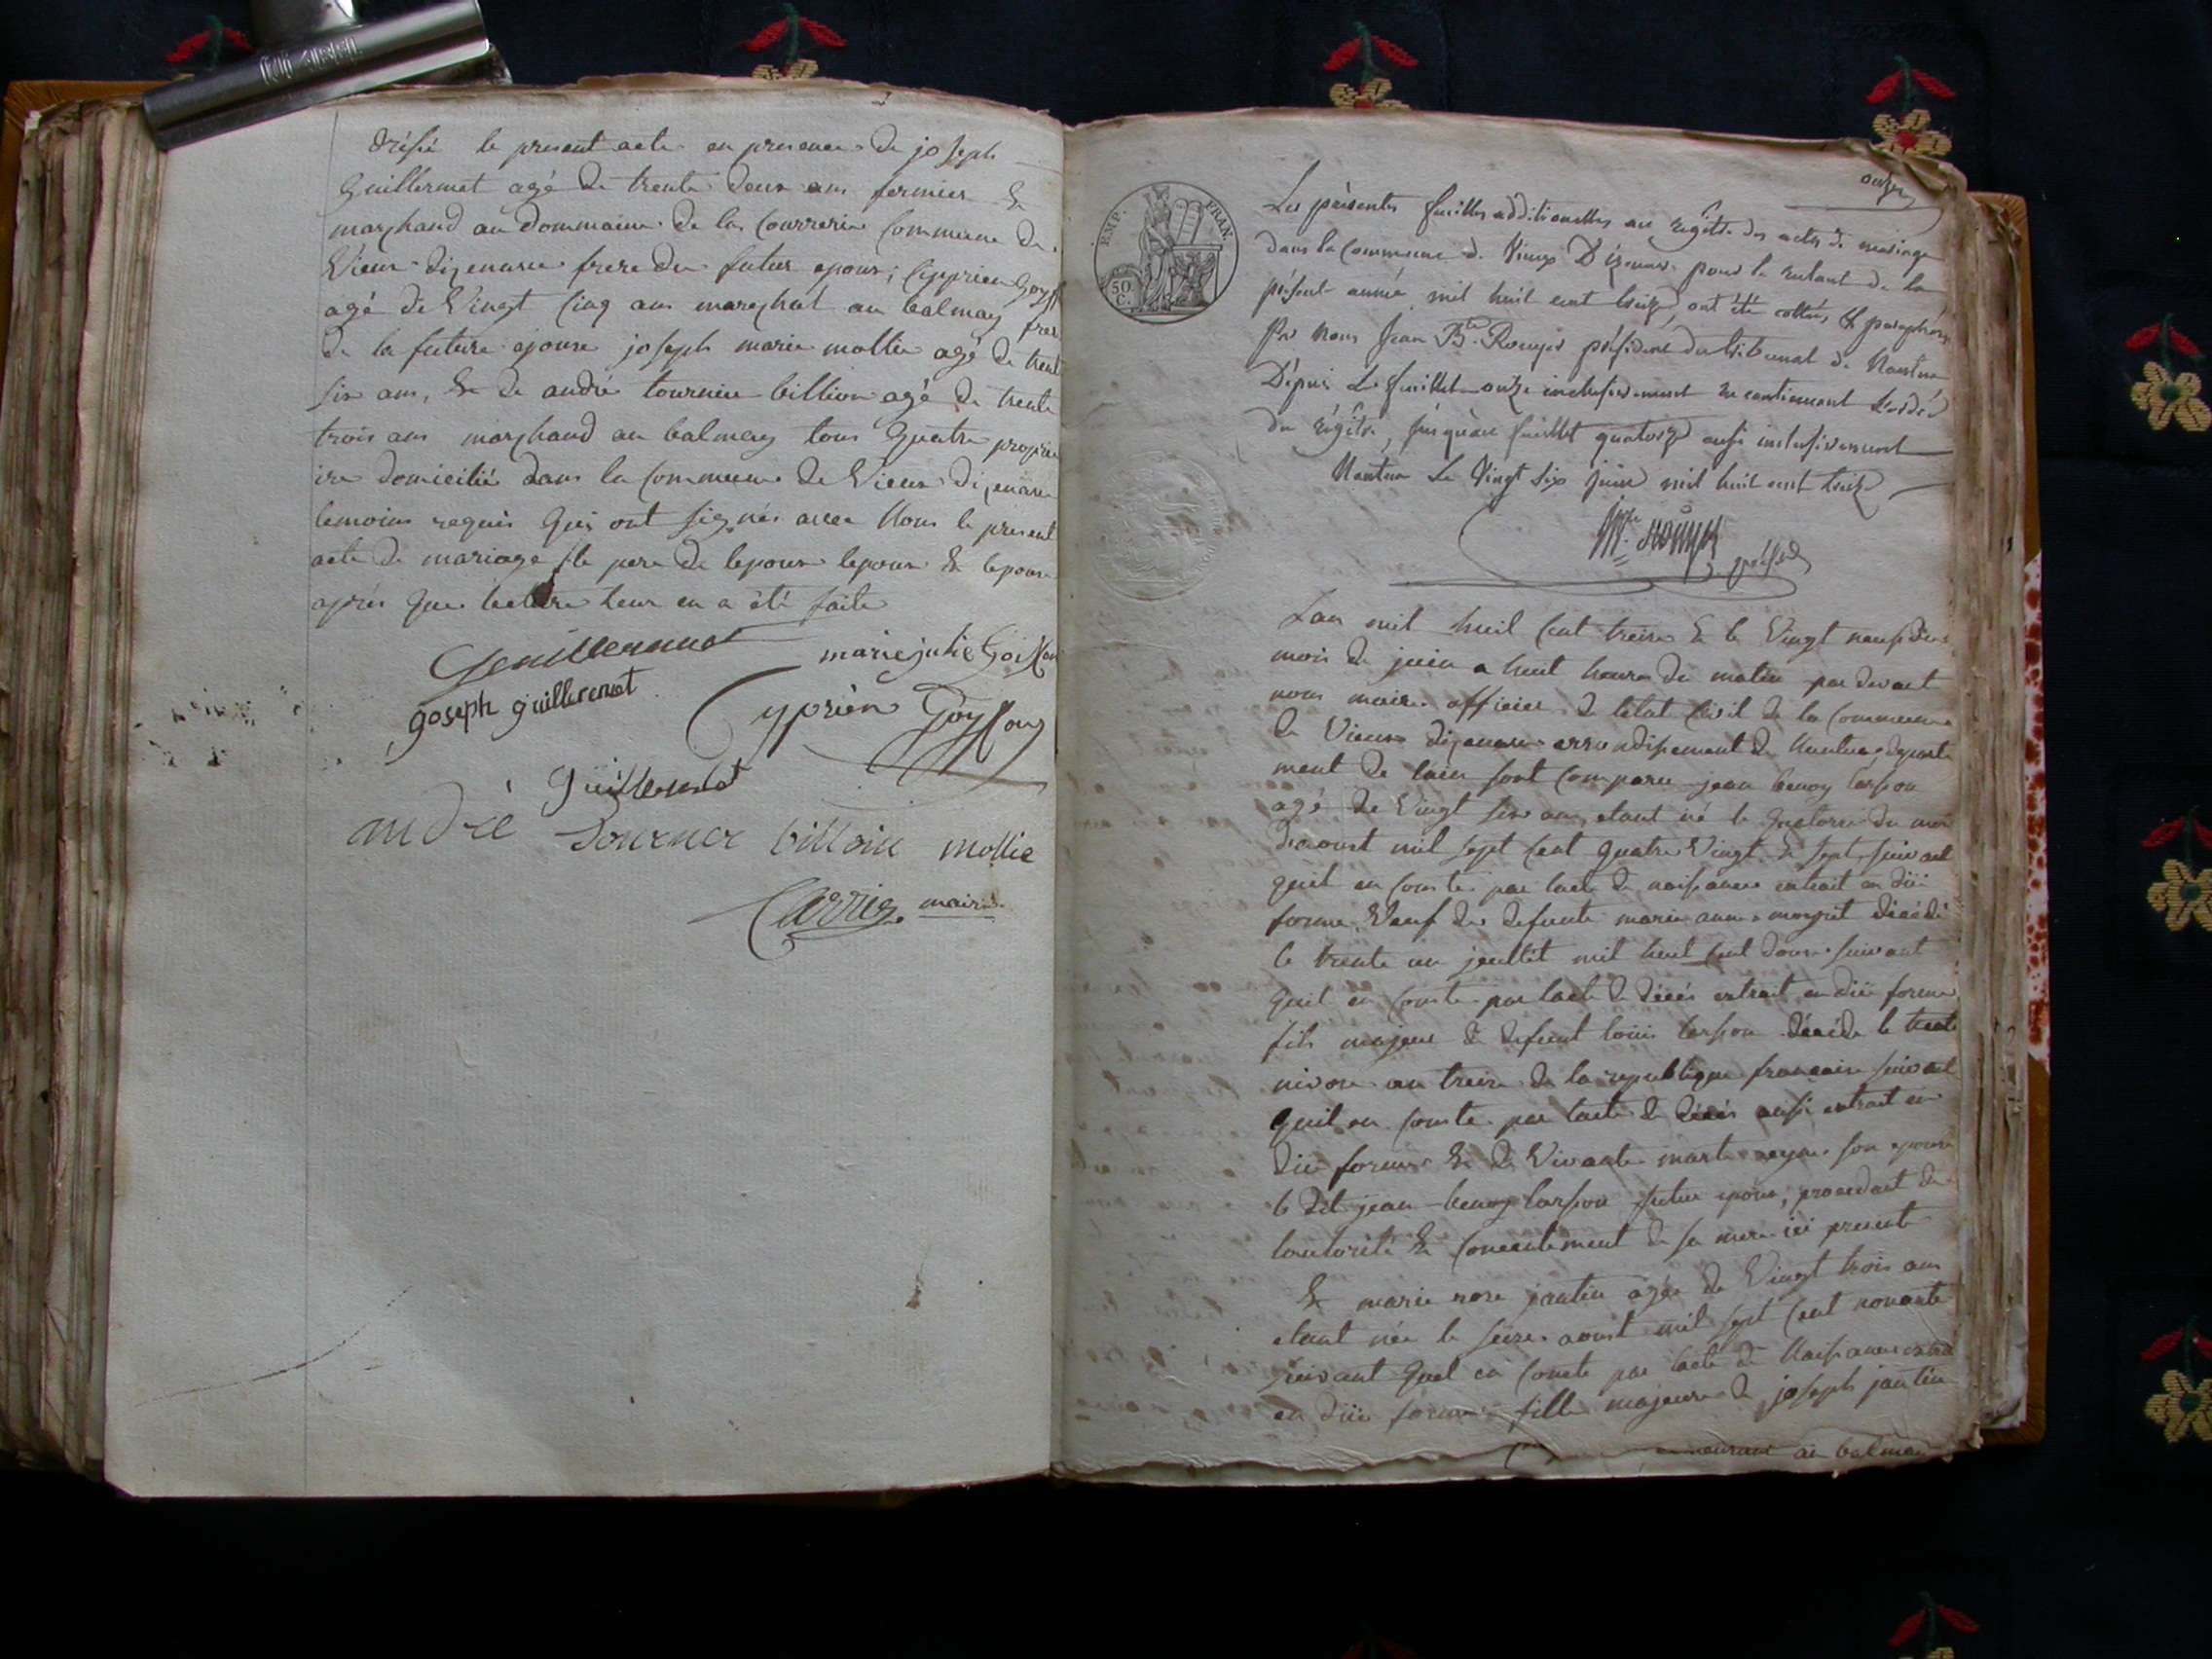 dressé le present acte en presence de joseph
Guillermet agé de trente deux ans fermier &
marchand au dommaine de la Courrerie Commune de
Vieux dizenave frere du futur epoux; Cipprien Goyff
agé de Vingt Cinq ans marechal au balmay frere
de la future epouse joseph marie mollie agé de trente
six ans, & de andré tournier billion agé de trente
trois ans marchand au balmay tous Quatre proprieta
ire domicilié dans la Commune de Vieux dizenave
temoins requis Qui ont signés avec Nous le present
acte de mariage le pere de lepoux lepoux & lepouse
aprés que lecture leur en a été faite
Guillermet
marie julie Goiffon
joseph guillermet
Cyprièn Goyffong
guillermet
andre tournier billion mollie
Carrier maire
onze
EMP. FRAN.
50 C.
Les présentes feuilles additionelles au régître des actes de mariage
dans la Commune de Vieux D'izenave pour le restant de la
présente année mil huit cent treize, ont été cottées & paraphées
Par Nous Jean Bte Rouyer président du tribunal de Nantua
Dépuis Le feuillet onze inclusivement en continuant l'ordre
du régître, jusqu'au feuillet quatorze aussi inclusivement
Nantua Le Vingt Six Juin mil huit cent treize
Lan mil huit Cent treise & le Vingt neuf du
mois de juin a huit heures du matin par devant
nous maire officier de letat Civil de la Commune
de Vieux dizenave arrondissement de Nantua departe
ment de lain sont Comparu jean benoy
agé de Vingt six ans etant né le Quatorse du moi
daoust mil sept Cent Quatre Vingt & sept, suivant
quil en Conste par lacte de naissance extrait en düe
forme Veuf de defunte marie anne décédé
le trente un jeuillet mil huit Cent douse suivant
quil en Conste par lacte de décés extrait en düe forme
fils majeur de defunt louis décédé le trente
nivose an treise de la republique française suivant
Quil en Conste par lacte de décés aussi extrait en
düe forme & de Vivante son epouse
le dit jean benoy futur epoux, procedant de
lautorité & Consentement de sa mere ici presente
& marie rose jantin agée de Vingt trois ans
etant née le seize aoust mil sept Cent nonante
suivant Quel en Conste par lacte de Naissance extrait
en düe forme fille majeure de joseph jantin
au balmay